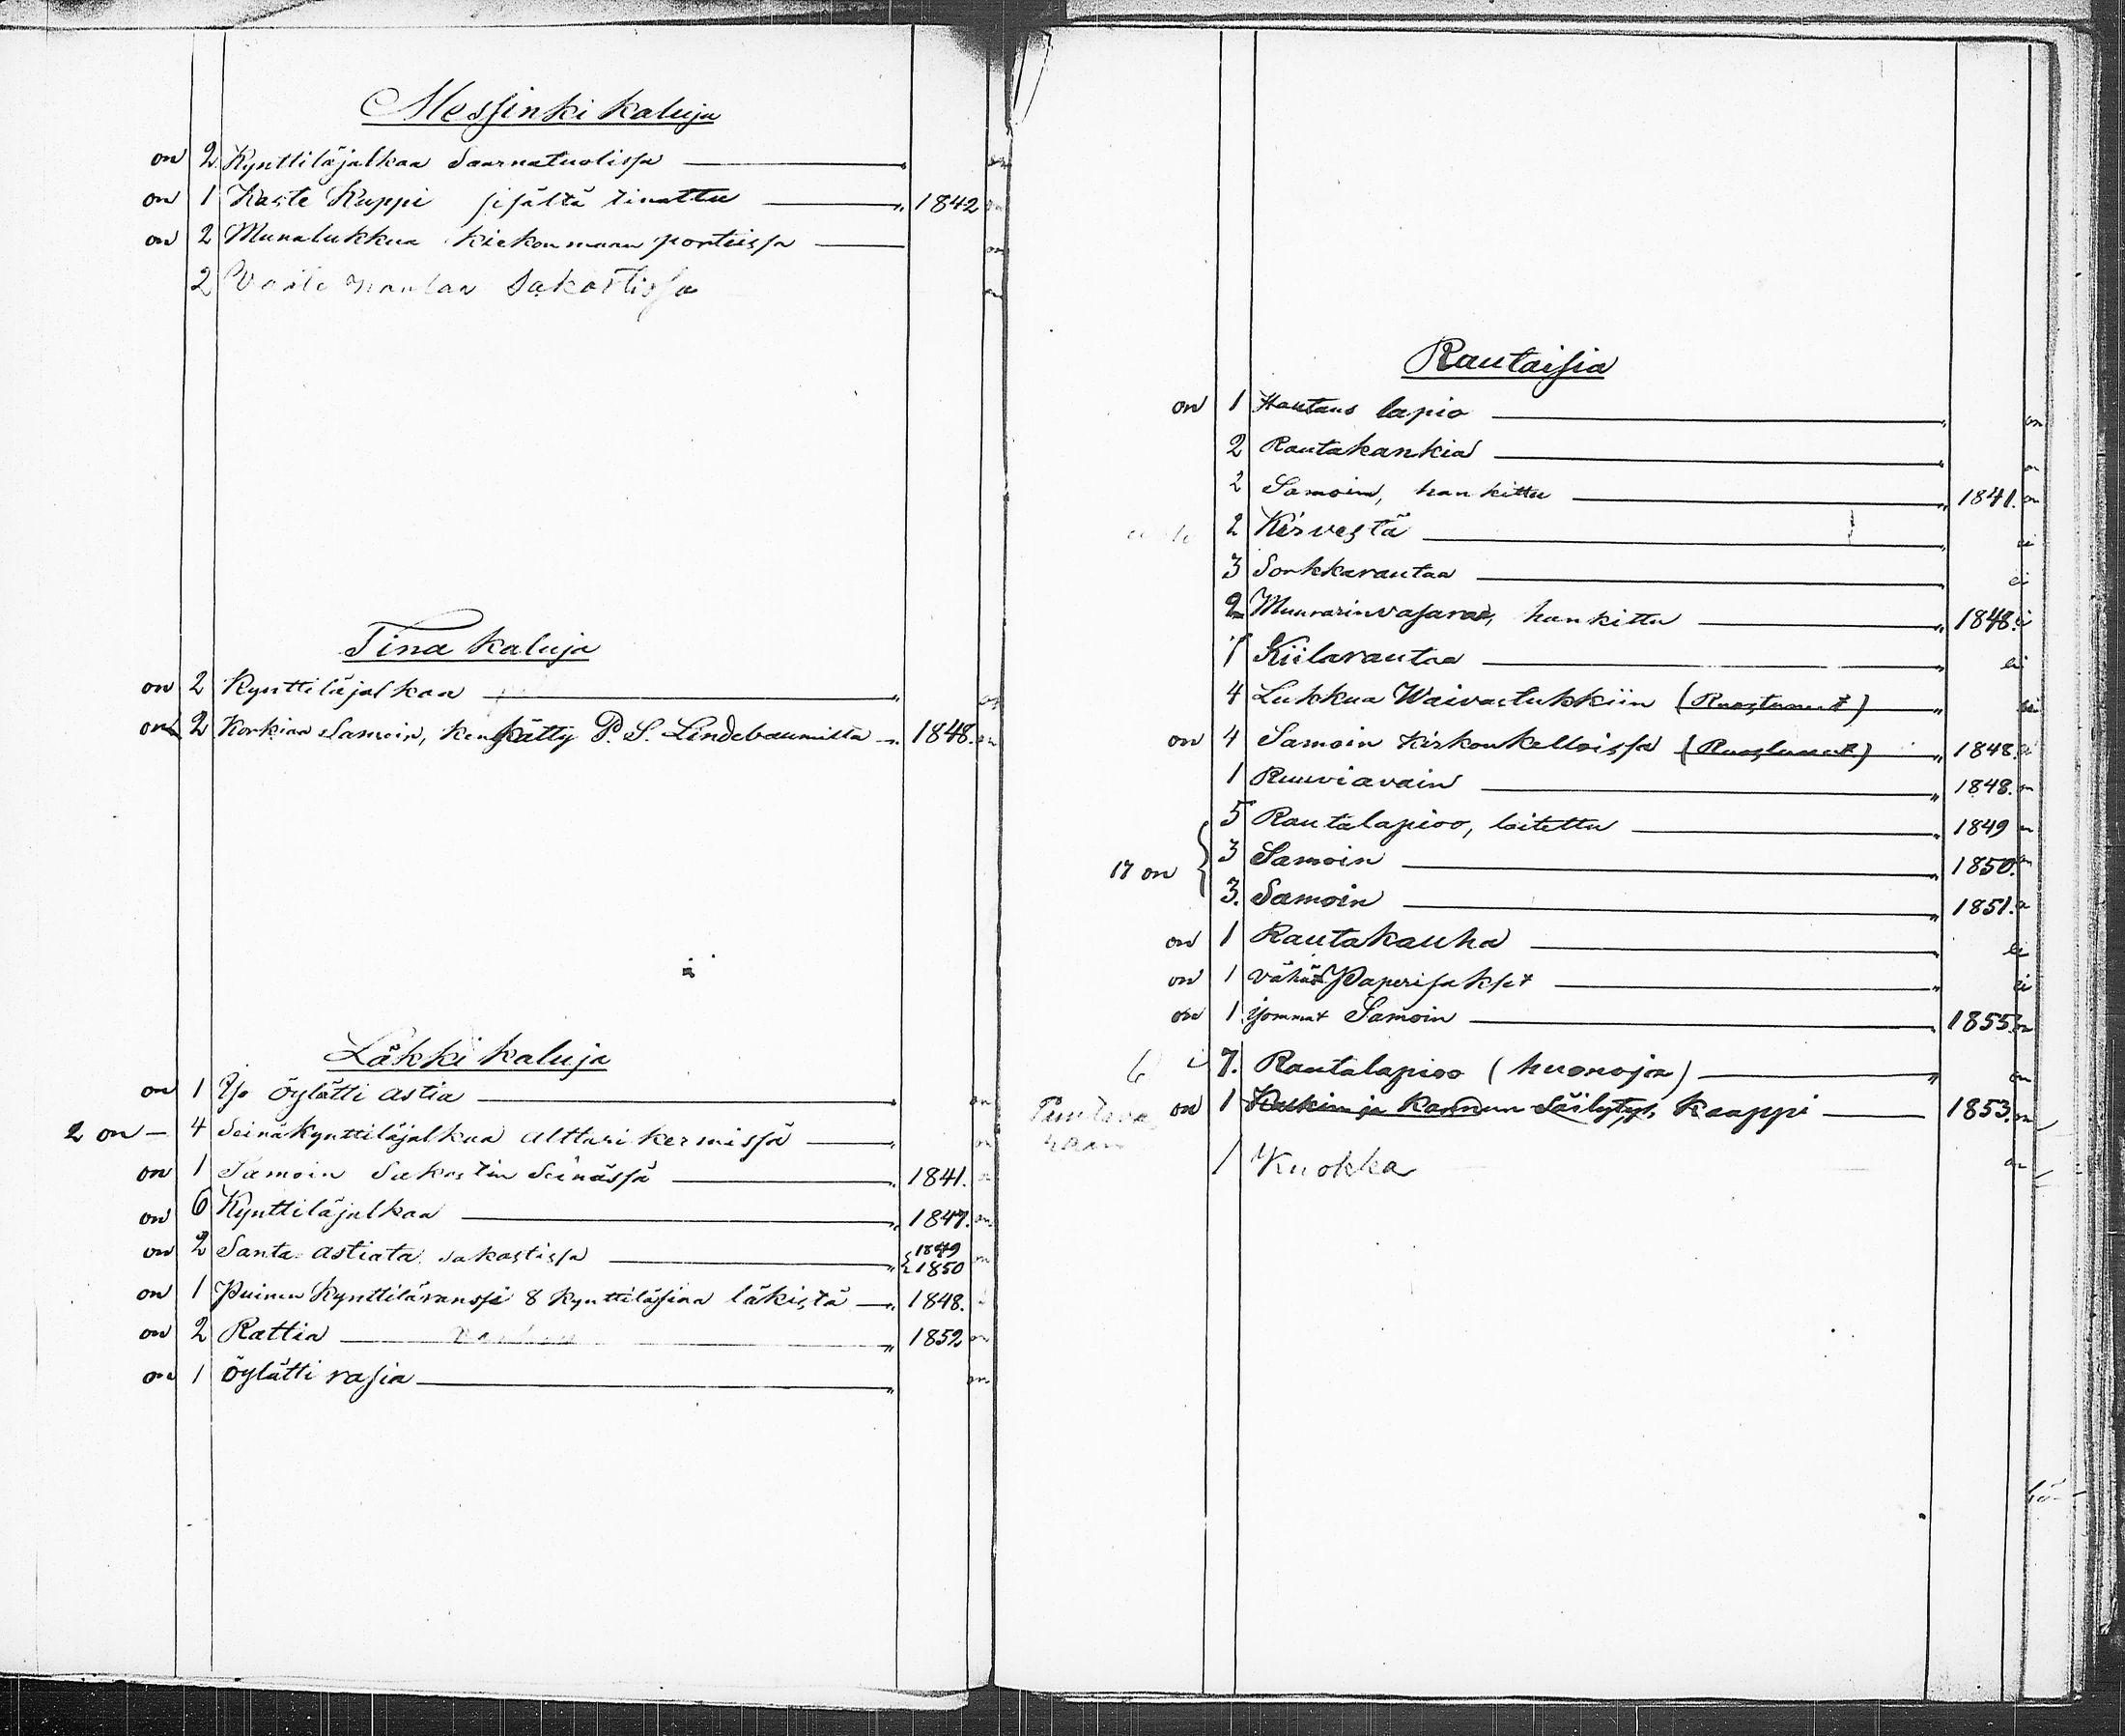 Messinki kaluja
on 2 Kynttiläjalkaa Saarnatuolissa on
on 1 Kaste Kuppi sisältä tinattu 1842 on
on 2 Munalukkua kirkonmaan portissa on
2 Vaate naulaa Sakastissa on
Tina kaluja
on 2 Kynttiläjalkaa on
on 2 Korkiaa Samoin, kenkätty P. S. Lindebaumilta 1848. on
Läkki kaluja
on 1 Iso Öylätti astia on
2 on — 4 Seinäkynttiläjalkaa alttari kermissä on
on 1 Samoin Sakastin Seinässä 1841.
on 6 Kynttiläjalkaa 1847. on
on 2 Santa astiata sakastissa { 1849 1850 on
on 1 Puinen Kynttiläranssi 8 kynttiläsiaa läkistä 1848.
on 2 Rattia 1852 on
on 1 Öylätti rasia on
Rautaisia
on 1 Hautaus lapio on
2 Rautakankia on
2 Samoin, hankittu 1841. on
2 Kirvestä ei
3 Sorkkarautaa ei
2 Muurarinvasaraa, hankittu 1848. ei
1 Kiilarautaa ei
4 Lukkua Waivastukkiin (Ruostunut) ei
on 4 Samoin Kirkonkelloissa (Ruostunut) 1848. ei
1 Ruuviavain 1848. on
5 Rautalapioo, laitettu 1849 on
17 on { 3 Samoin 1850. on
3. Samoin 1851. on
on 1 Rautakauha ei
on 1 vähät Paperisakset ei
on 1 isommat Samoin 1855. on
6 7. Rautalapioo (huonoja) on
on 1 Kalkin ja Kannun Säilytys, Kaappi 1853. on
1 Kuokka on